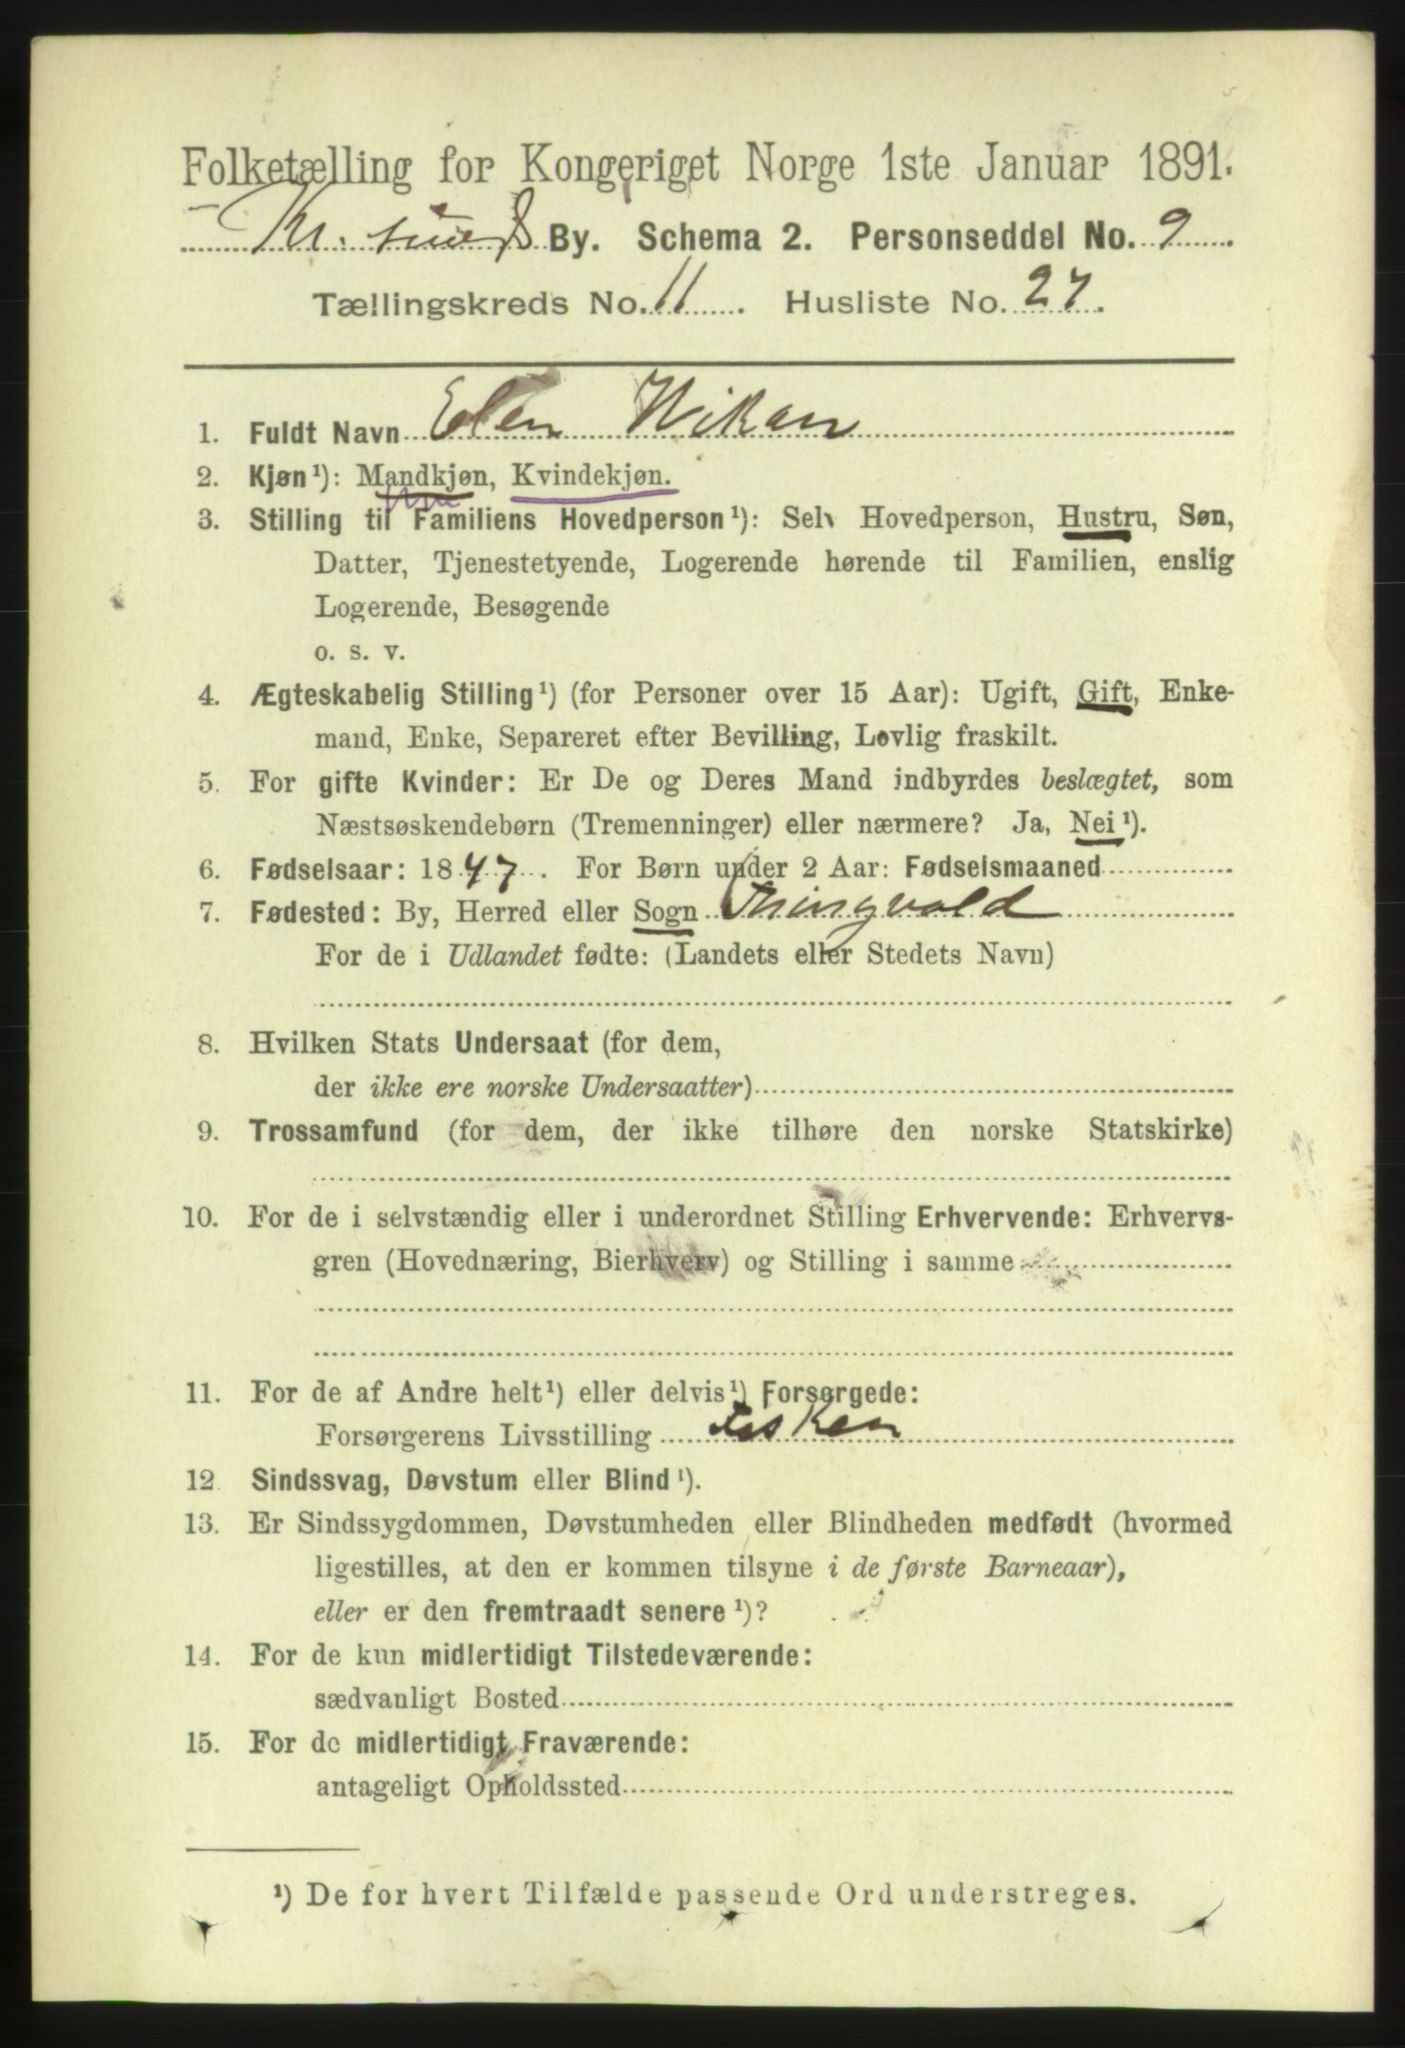 Folketælling for Kongeriget Norge 1ste Januar 1891.
Kr. sund By. Schema 2. Personseddel No. 9
Tællingskreds No. 11. Husliste No. 27.
1. Fuldt Navn Elen Wikan
2. Kjøn¹): Mandkjøn, Kvindekjøn.
3. Stilling til Familiens Hovedperson¹): Selv Hovedperson, Hustru, Søn,
Datter, Tjenestetyende, Logerende hørende til Familien, enslig
Logerende, Besøgende
o. s. v.
4. Ægteskabelig Stilling¹) (for Personer over 15 Aar): Ugift, Gift, Enke-
mand, Enke, Separeret efter Bevilling, Lovlig fraskilt.
5. For gifte Kvinder: Er De og Deres Mand indbyrdes beslægtet, som
Næstsøskendebørn (Tremenninger) eller nærmere? Ja, Nei¹).
6. Fødselsaar: 1847. For Børn under 2 Aar: Fødselsmaaned
7. Fødested: By, Herred eller Sogn Thingvold
For de i Udlandet fødte: (Landets eller Stedets Navn)
8. Hvilken Stats Undersaat (for dem,
der ikke ere norske Undersaatter)
9. Trossamfund (for dem, der ikke tilhøre den norske Statskirke)
10. For de i selvstændig eller i underordnet Stilling Erhvervende: Erhvervs-
gren (Hovednæring, Bierhverv) og Stilling i samme
11. For de af Andre helt¹) eller delvis¹) Forsørgede:
Forsørgerens Livsstilling
12. Sindssvag, Døvstum eller Blind¹).
13. Er Sindssygdommen, Døvstumheden eller Blindheden medfødt (hvormed
ligestilles, at den er kommen tilsyne i de første Barneaar),
eller er den fremtraadt senere¹)?
14. For de kun midlertidigt Tilstedeværende:
sædvanligt Bosted
15. For de midlertidigt Fraværende:
antageligt Opholdssted
¹) De for hvert Tilfælde passende Ord understreges.